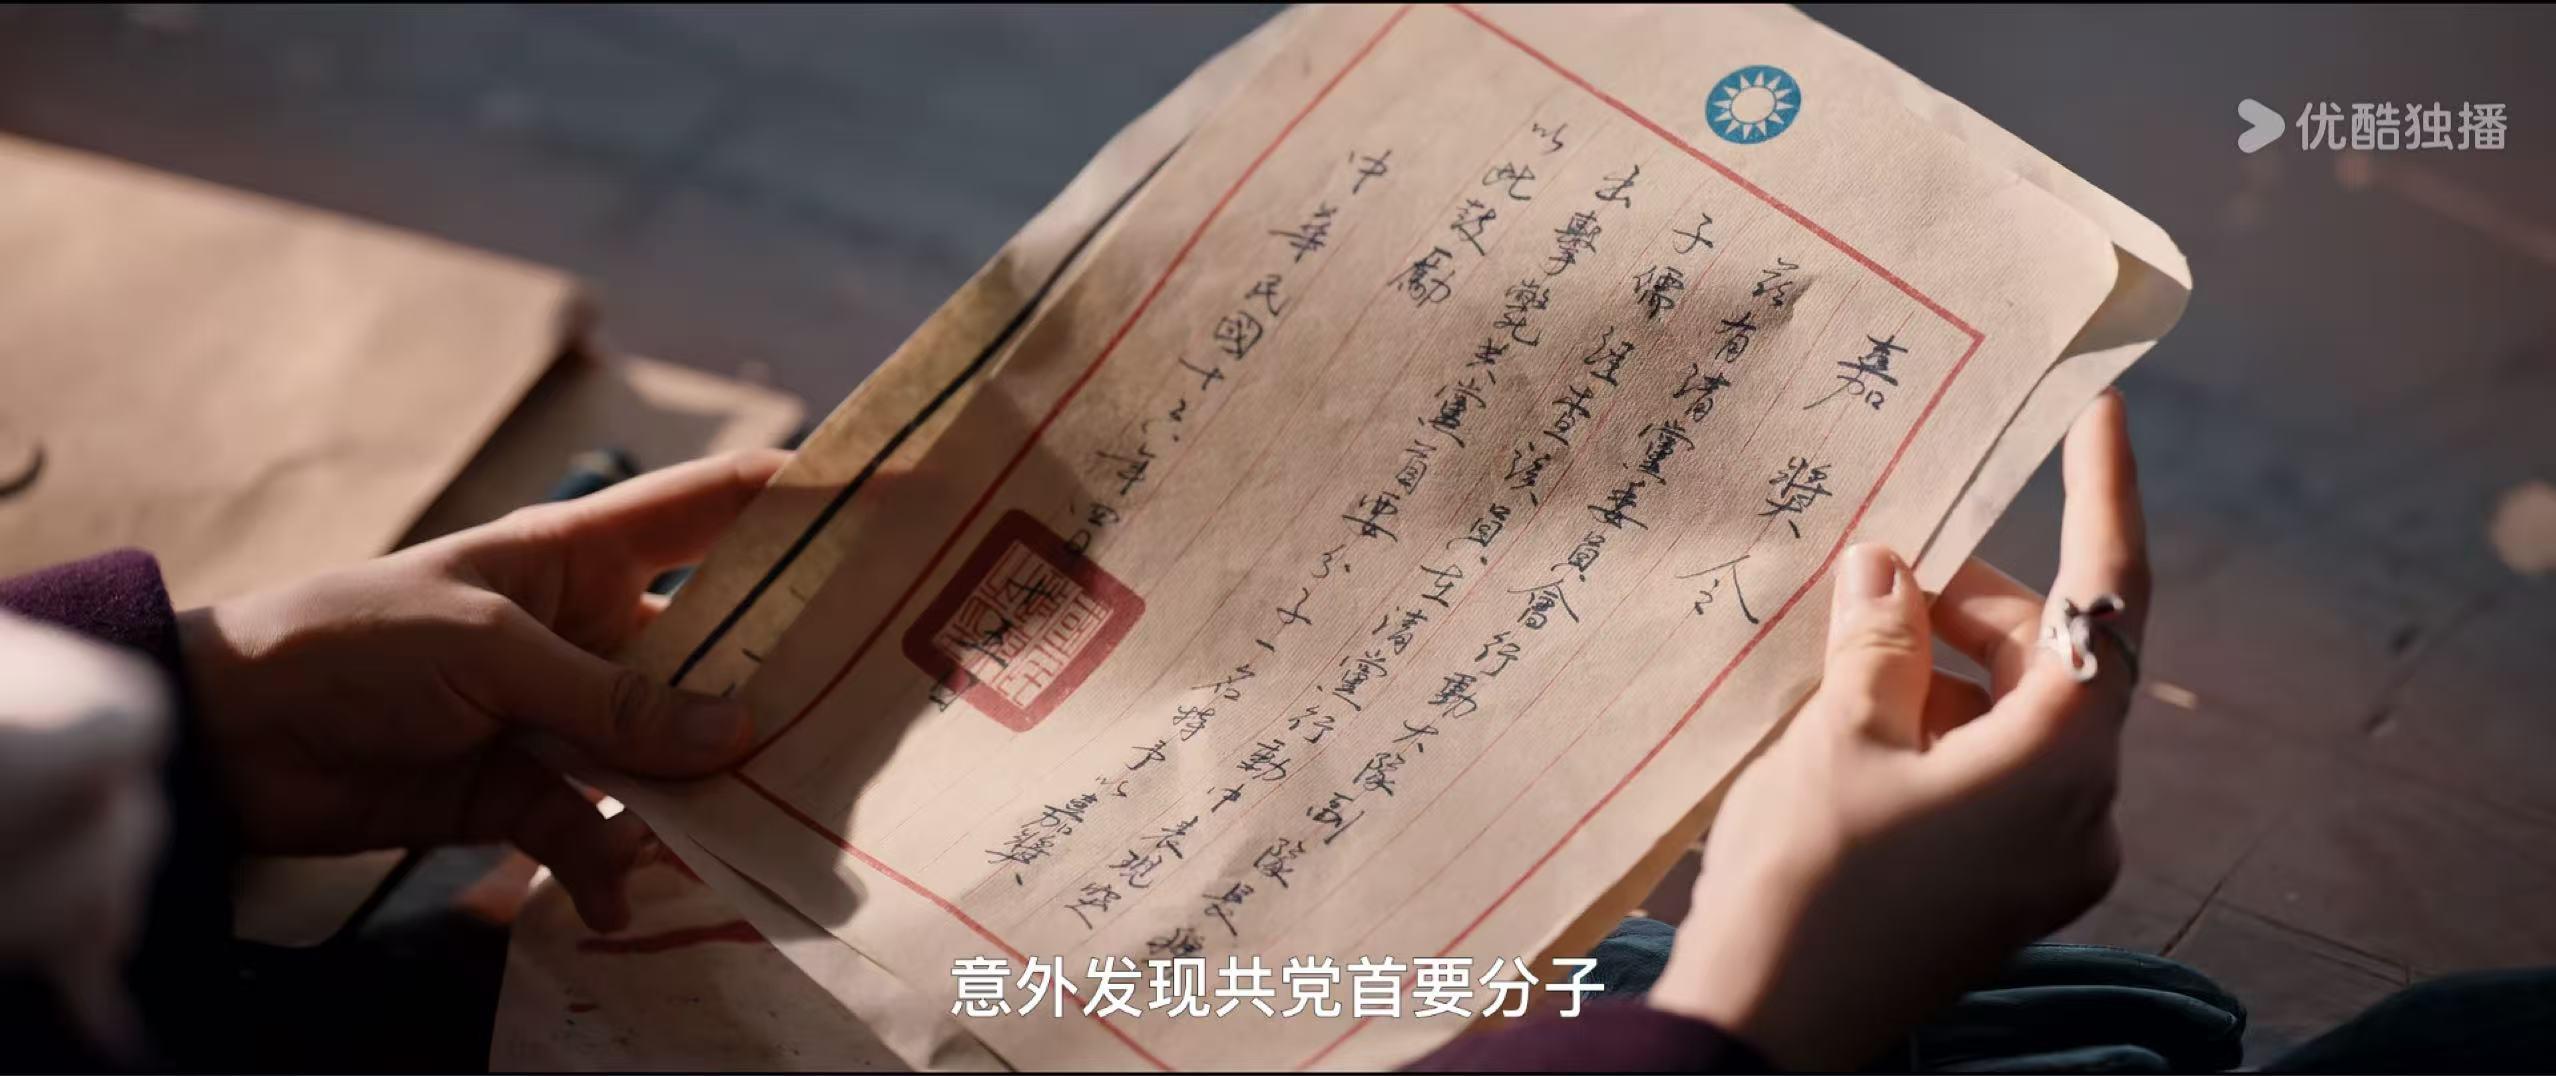 优酷独播
嘉獎令
茲有清黨委員會行動大隊副隊長
子儒 經查該員在清黨行動中表現突
出擊斃共黨首要分子一名特予以嘉獎、
以此鼓勵
中華民國十六年四月廿五日
意外发现共党首要分子